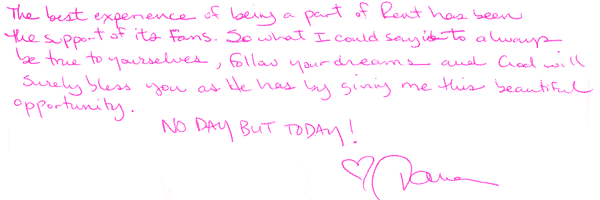 The best experience of being a part of Rent has been
the support of its fans. So what I could say is to always
be true to yourselves, follow your dreams and God will
surely bless you as He has by giving me this beautiful
opportunity.
NO DAY BUT TODAY!